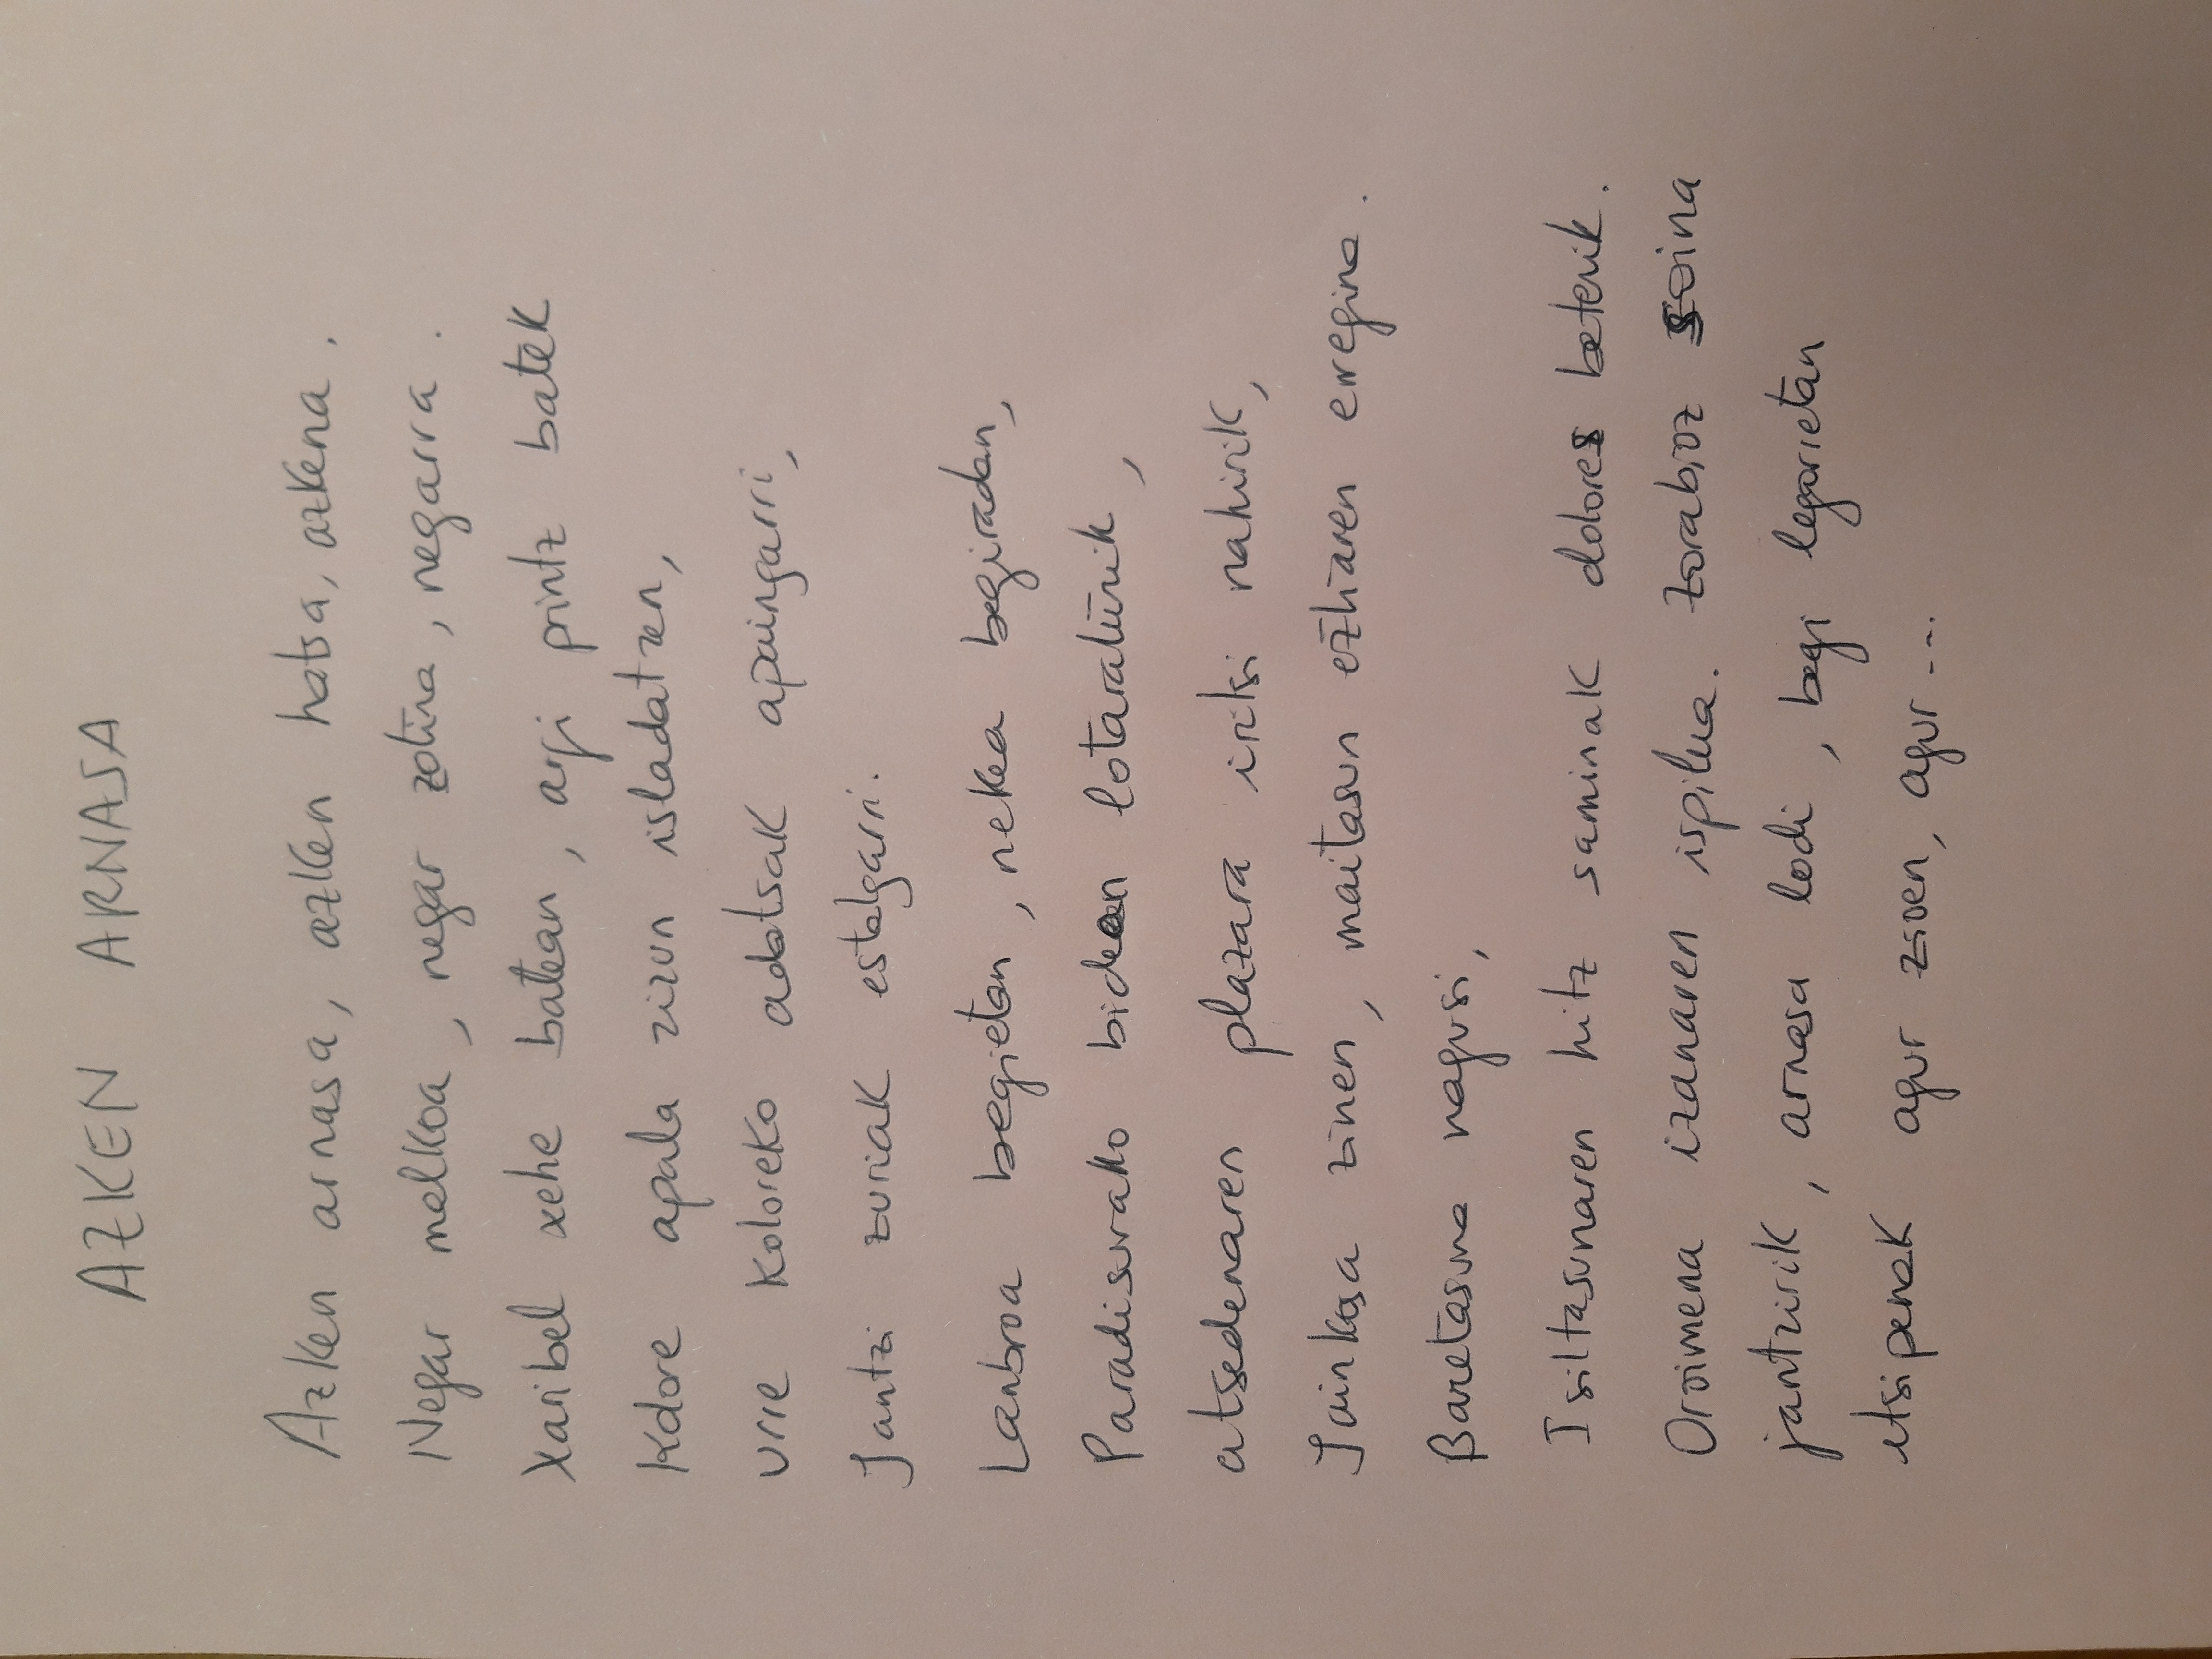 AZKEN ARNASA
Azken arnasa, azken hatsa, azkena.
Negar malkoa, negar zotina, negarra.
Xaribel xehe batean, argi printz batek
Kolore apala zizun isladatzen,
urre koloreko adatsak apaingarri,
Jantzi zuriak estalgarri.
Lanbroa begietan, nekea begiradan,
Paradisurako bidean lotaraturik,
atsedenaren plazara iritsi nahirik,
Jainkosa zinen, maitasun eztiaren erregina.
Baretasuna nagusi,
Isiltasunaren hitz saminak dolorez beterik.
Oroimena izanaren ispilua. Zorabioz soina
jantzirik, arnasa lodi, begi legorretan
etsipenak agur zioen, agur...